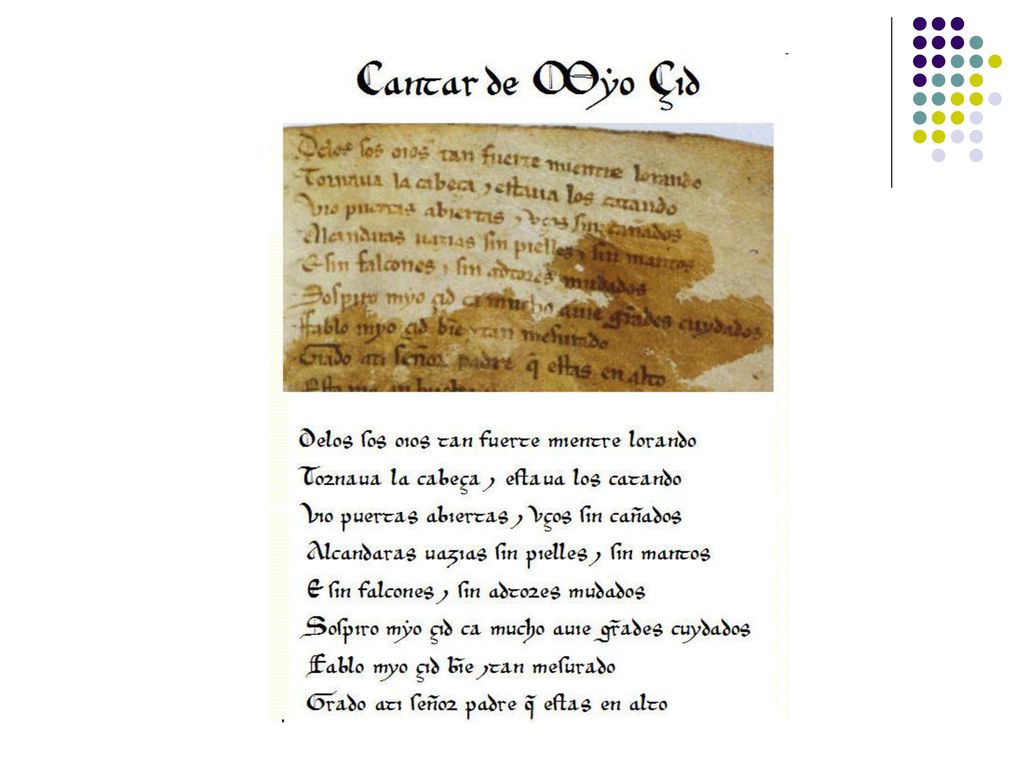 Cantar de Mẏo Çid
Delos ſos oios tan fuerte mientre lorando
Tornaua la cabeça ⁊ eſtaua los catando
Vio puertas abiertas ⁊ vços ſin cañados
Alcandaras uazias ſin pielles ⁊ ſin mantos
E ſin falcones ⁊ ſin adtores mudados
Soſpiro myo çid ca mucho auie gr̃ades cuydados
Ffablo myo çid bie ⁊ tan meſurado
Grado ati ſeñor padre q̃ eſtas en alto
Delos ſos oios tan fuerte mientre lorando
Tornaua la cabeça ⁊ eſtaua los catando
Vio puertas abiertas ⁊ vços ſin cañados
Alcandaras uazias ſin pielles ⁊ ſin mantos
E ſin falcones ⁊ ſin adtores mudados
Soſpiro mẏo çid ca mucho auie gr̃ades cuydados
Ffablo myo çid bĩe ⁊tan meſurado
Grado ati ſeñor padre q̃ eſtas en alto